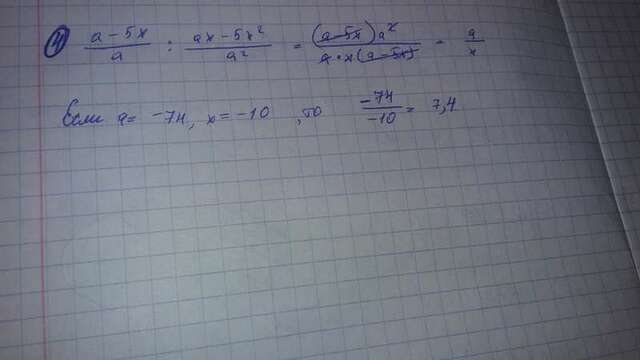 4 (a - 5x)/a : (ax - 5x²)/a² = ((a - 5x)a²)/(a · x(a - 5x)) = a/x
Если a = -74, x = -10, то -74/-10 = 7,4